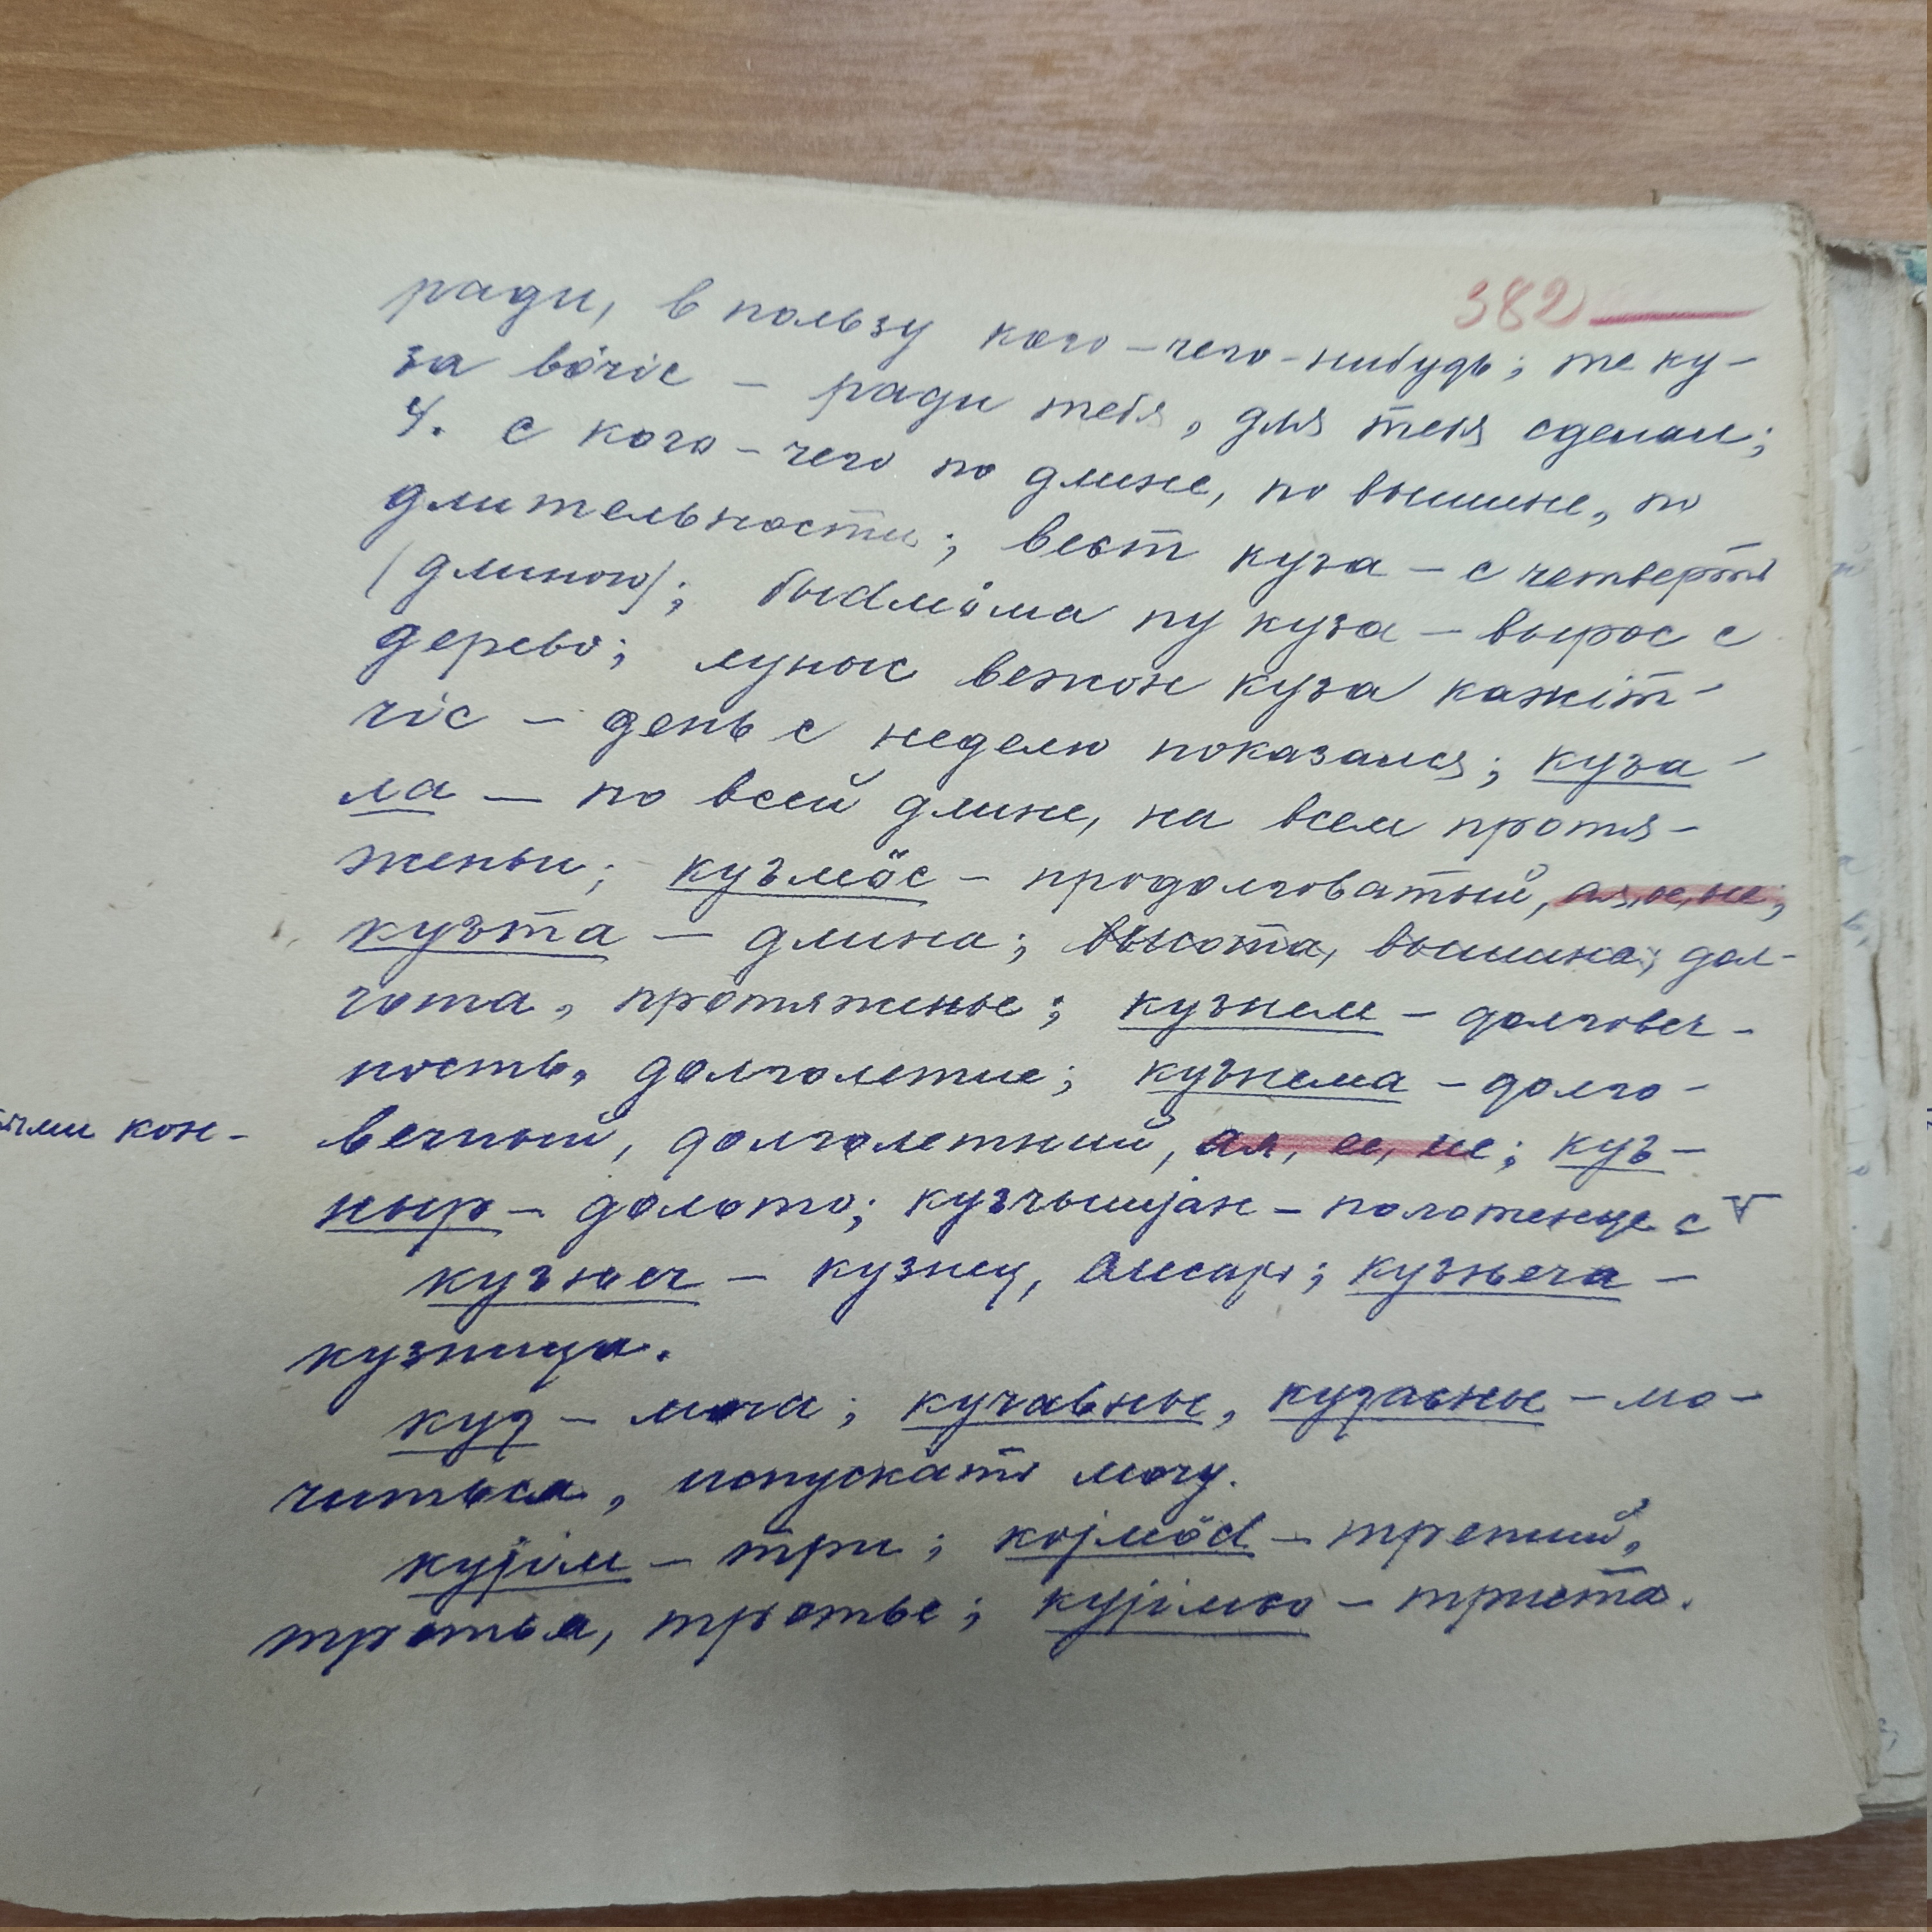 382
ради, в пользу кого-чего-нибудь; те ку-
за вӧчіс — ради тебя, для тебя сделал;
4. с кого-чего по длине, по вышине, по
длительности; вест куза — с четверть
(длиною); быdмӧма пу куза — вырос с
дерево; луныс вежон куза кажіт-
чіс — день с неделю показался; куза-
ла — по всей длине, на всем протя-
женьи; кузмӧс — продолговатый, ая, ое, ые;
кузта — длина; высота, вышина; дол-
гота, протяженье; кузнем — долговеч-
ность, долголетие; кузнема — долго-
кон- вечный, долголетний, ая, ее, ие; куз-
ныр — долото; кузчышјан — полотенце с
кузнеч — кузнец, слесарь; кузнеча —
кузница.
куԇ — моча; кучавны, куԇавны — мо-
читься, испускать мочу.
кујім — три; којмӧd — третий,
третья, третье; кујімсо — триста.